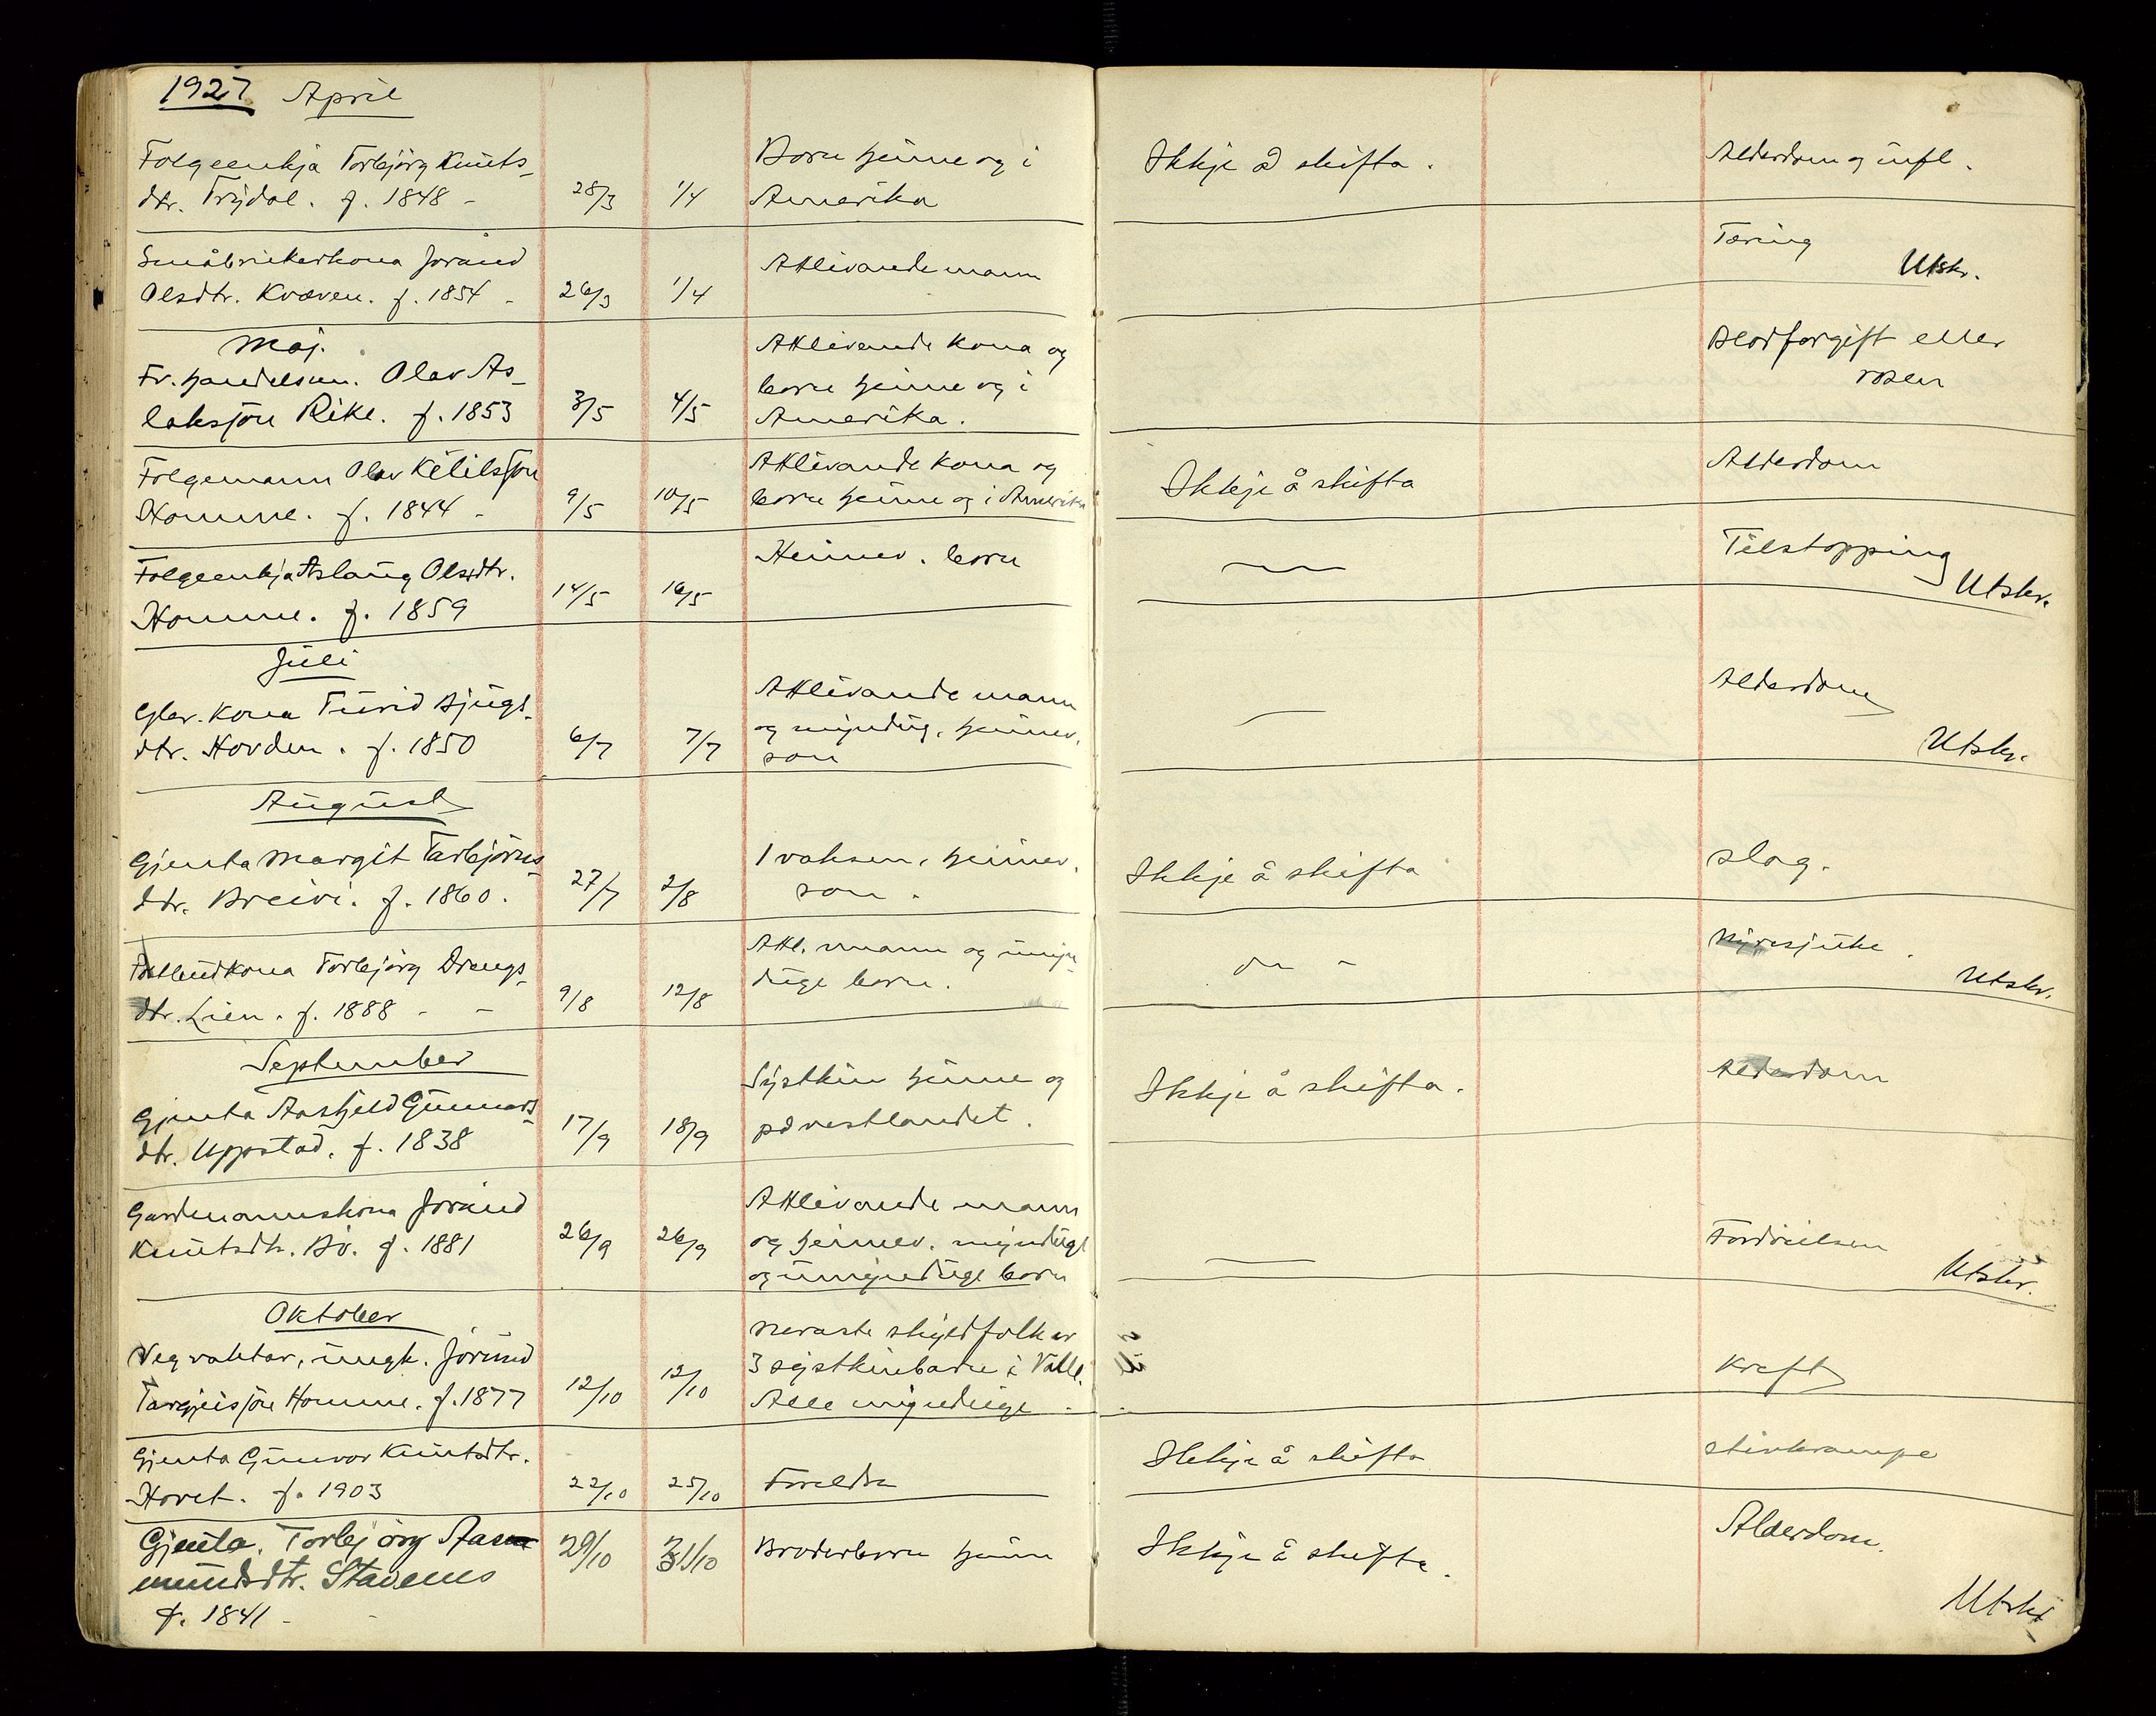 1927 April
Folgeenkja Torbjörg Knuts-
dtr. Trydal. f. 1848 -
28/3
1/4
Born heime og i
Amerika
Ikkje å skifta.
Alderdom og infl.
Småbrukerkona Jorund
Olsdtr. Kvæven. f. 1854 -
26/3
1/4
Attlivande mann
Tæring
Utskr.
Maj.
Fv. handelsm. Olav As-
laksson Rike. f. 1853
3/5
4/5
Attlivande kona og
born heime og i
Amerika.
Blodforgift eller
rosen
Folgemann Olav Ketilsson
Homme. f. 1844 -
9/5
10/5
Attlivande kona og
born heime og i Amerika
Ikkje å skifta
Alderdom
Folgeenkja Aslaug Olsdtr.
Homme. f. 1859
14/5
16/5
Heimev. born
—
Tilstopping
Utskr.
Juli
Gbr. kona Turid Bjugs-
dtr. Hovden. f. 1850
6/7
7/7
Attlivande mann
og myndig, heimev.
son
—
Alderdom
Utskr.
August
Gjenta Margit Tarbjörns-
dtr. Breivi. f. 1860.
27/7
2/8
1 vaksen, heimev.
son.
Ikkje å skifta
Slag.
Torbjörg Drengs-
dtr. Lien. f. 1888 - -
9/8
12/8
Attl. mann og umyn-
duge born.
do -
Nyresjuke.
Utskr.
September
Gjenta Aashild Gunnars-
dtr. Uppstad. f. 1838
17/9
18/9
Systkin heime og
på vestlandet.
Ikkje å skifta.
Alderdom
Gardmannskona Jorund
Knutsdtr. Bö. f. 1881
26/9
26/9
Attlivande mann
og heimev. myndige
og umyndige born
—
Utskr.
Oktober
Vegvaktar, ungk. Jorund
Targjeisson Homme. f. 1877
12/10
12/10
Næraste skyldfolk er
3 systkinbarn i Valle.
Alle myndige -
Kreft
Gjenta Gunvor Knutsdtr.
Hovet. f. 1903
22/10
25/10
Foreldra
Ikkje å skifta
Stivkrampe
Gjenta. Torbjörg Aas-
mundsdtr. Stavenes
f. 1841 -
29/10
31/10
Broderborn heime
Ikkje å skifta.
Alderdom.
Utskr